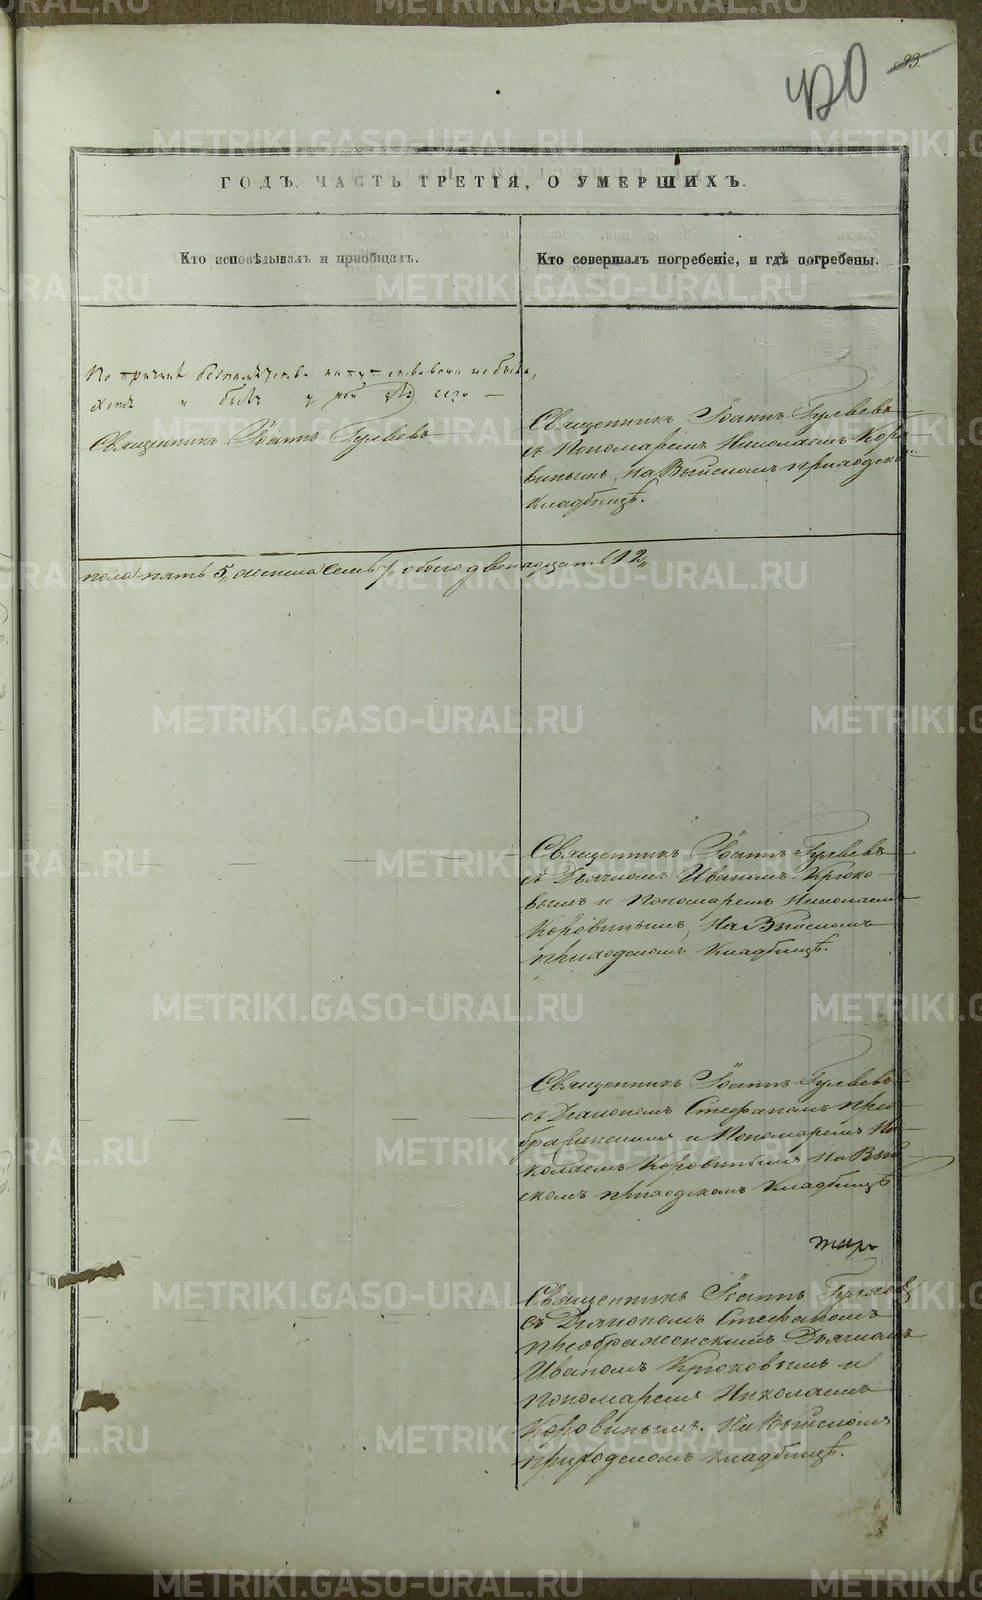 420
93.
ГОДЪ, ЧАСТЬ ТРЕТІЯ, О УМЕРШИХЪ.
Кто исповѣдывалъ и пріобщалъ.
Кто совершалъ погребеніе, и гдѣ погребены.
По причинѣ
Священникъ Іоаннъ Гуляевъ
Священникъ Іоаннъ Гуляевъ
съ Пономаремъ Николаемъ Коро-
винымъ, на Выйскомъ приходско
кладбищѣ.
пола пять 5, женска семь 7, обоего двенадцать 12,,
Священникъ Іоаннъ Гуляевъ
съ Дьячкомъ Иваномъ Крюко-
вымъ и Пономаремъ Николаемъ
Коровинымъ, на Выйскомъ
приходскомъ кладбищѣ.
Священникъ Іоаннъ Гуляевъ
съ Діакономъ Стефаномъ прео-
браженскимъ и Пономаремъ Ни-
колаемъ Коровинымъ на Вый-
скомъ приходскомъ кладбищѣ
Священникъ Іоаннъ Гуляевъ
съ Діакономъ Стефаномъ
преображенскимъ Дьячкомъ
Иваномъ Крюковымъ и
пономаремъ Николаемъ
Коровинымъ. на Выйскомъ
приходскомъ кладбищѣ.
METRIKI.GASO-URAL.RU